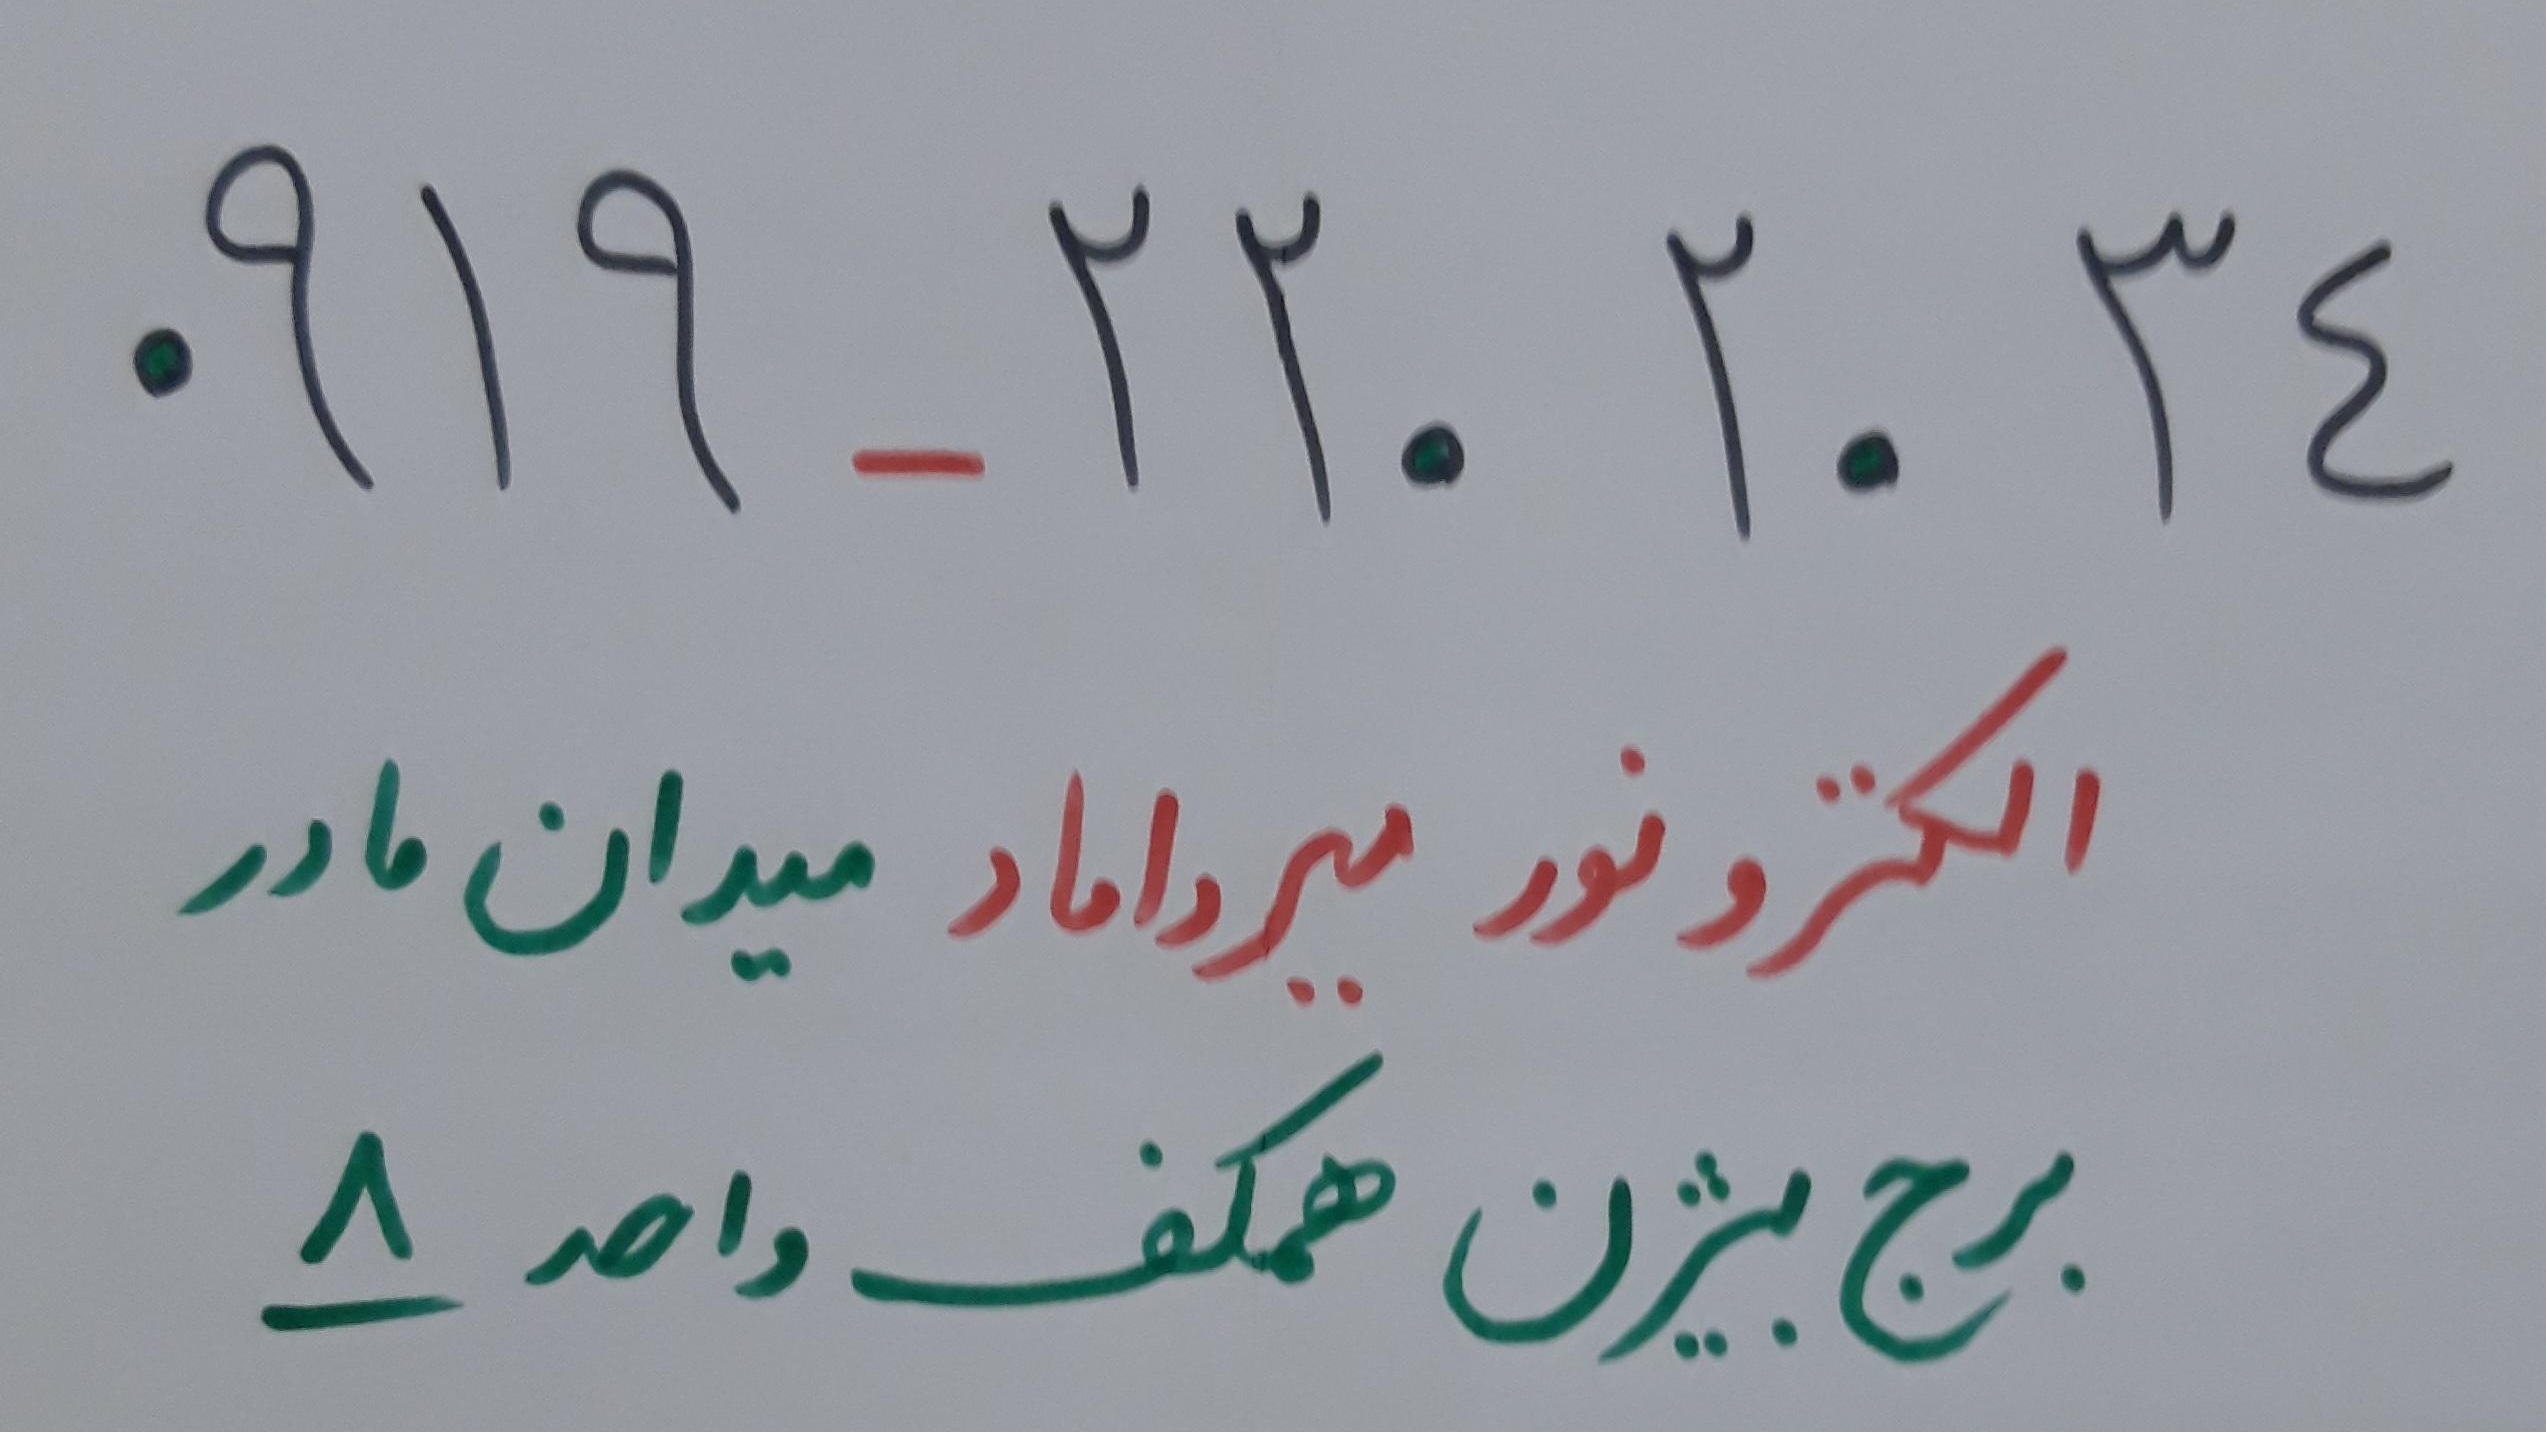 ۰۹۱۹_۲۲۰۲۰۳٤
الکترونور میرداماد میدان مادر
برج بیژن همکف واحد ۸